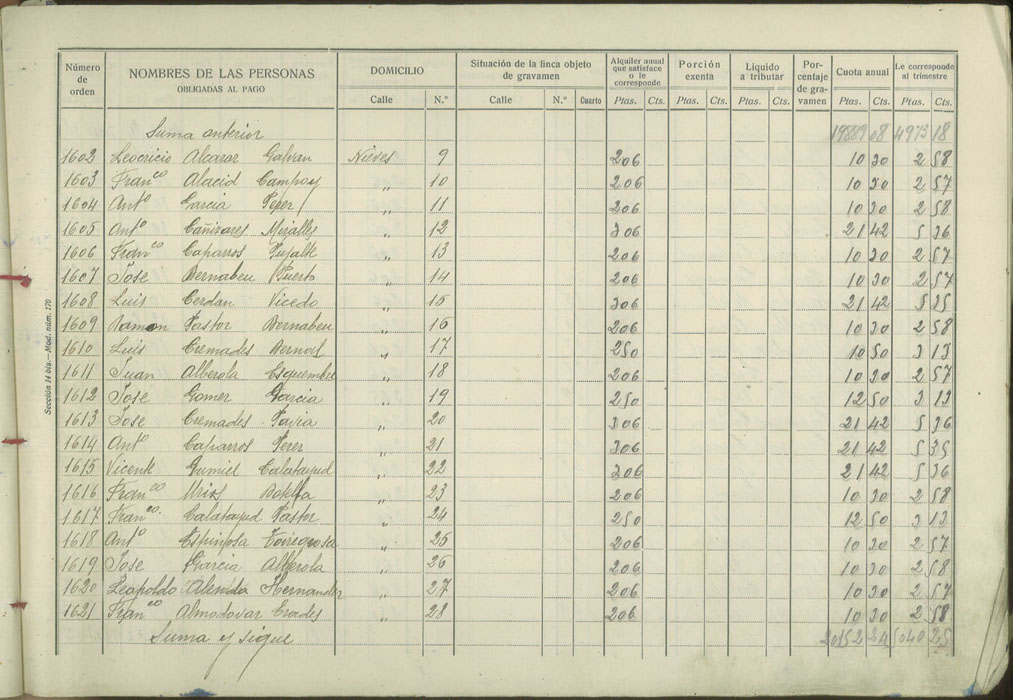 Número de orden | NOMBRES DE LAS PERSONAS OBLIGADAS AL PAGO | DOMICILIO | Situación de la finca objeto de gravamen | Alquiler anual que satisface o le corresponde | Porción exenta | Líquido a tributar | Por-centaje de gra-vamen | Cuota anual | Le corresponde al trimestre
Calle | N.º | Calle | N.º | Cuarto | Ptas. | Cts. | Ptas. | Cts. | Ptas. | Cts. | Ptas. | Cts. | Ptas. | Cts.
Suma anterior 19889 08 4973 18
1602 Leocricio Alcaraz Galvan Nieves 9 206 10 30 2 58
1603 Fran.co Alacid Campoy " 10 206 10 30 2 57
1604 Ant.o Garcia Perez " 11 206 10 30 2 58
1605 Ant.o Cañizares Miralles " 12 306 21 42 5 36
1606 Fran.co Caparros Pujalte " 13 206 10 30 2 57
1607 Jose Bernabeu Puerto " 14 206 10 30 2 57
1608 Luis Cerdan Vicedo " 15 306 21 42 5 35
1609 Ramon Pastor Bernabeu " 16 206 10 30 2 58
1610 Luis Cremades Bernal " 17 250 10 50 3 13
1611 Juan Alberola Esquembre " 18 206 10 30 2 57
1612 Jose Gomez Garcia " 19 250 12 50 3 13
1613 Jose Cremades " 20 306 21 42 5 36
1614 Ant.o Caparros Perez " 21 306 21 42 5 35
1615 Vicente Gumiel Calatayud " 22 306 21 42 5 36
1616 Fran.co Urios Botella " 23 206 10 30 2 58
1617 Fran.co Calatayud Pastor " 24 250 12 50 3 13
1618 Ant.o Espinosa Torregrosa " 25 206 10 30 2 57
1619 Jose Garcia Alberola " 26 206 10 30 2 58
1620 Leopoldo Alenda Hernandez " 27 206 10 30 2 57
1621 Fran.co Almodovar " 28 206 10 30 2 58
Suma y sigue 20152 24 5040 25
Sección 14 bis.—Mod. núm. 170